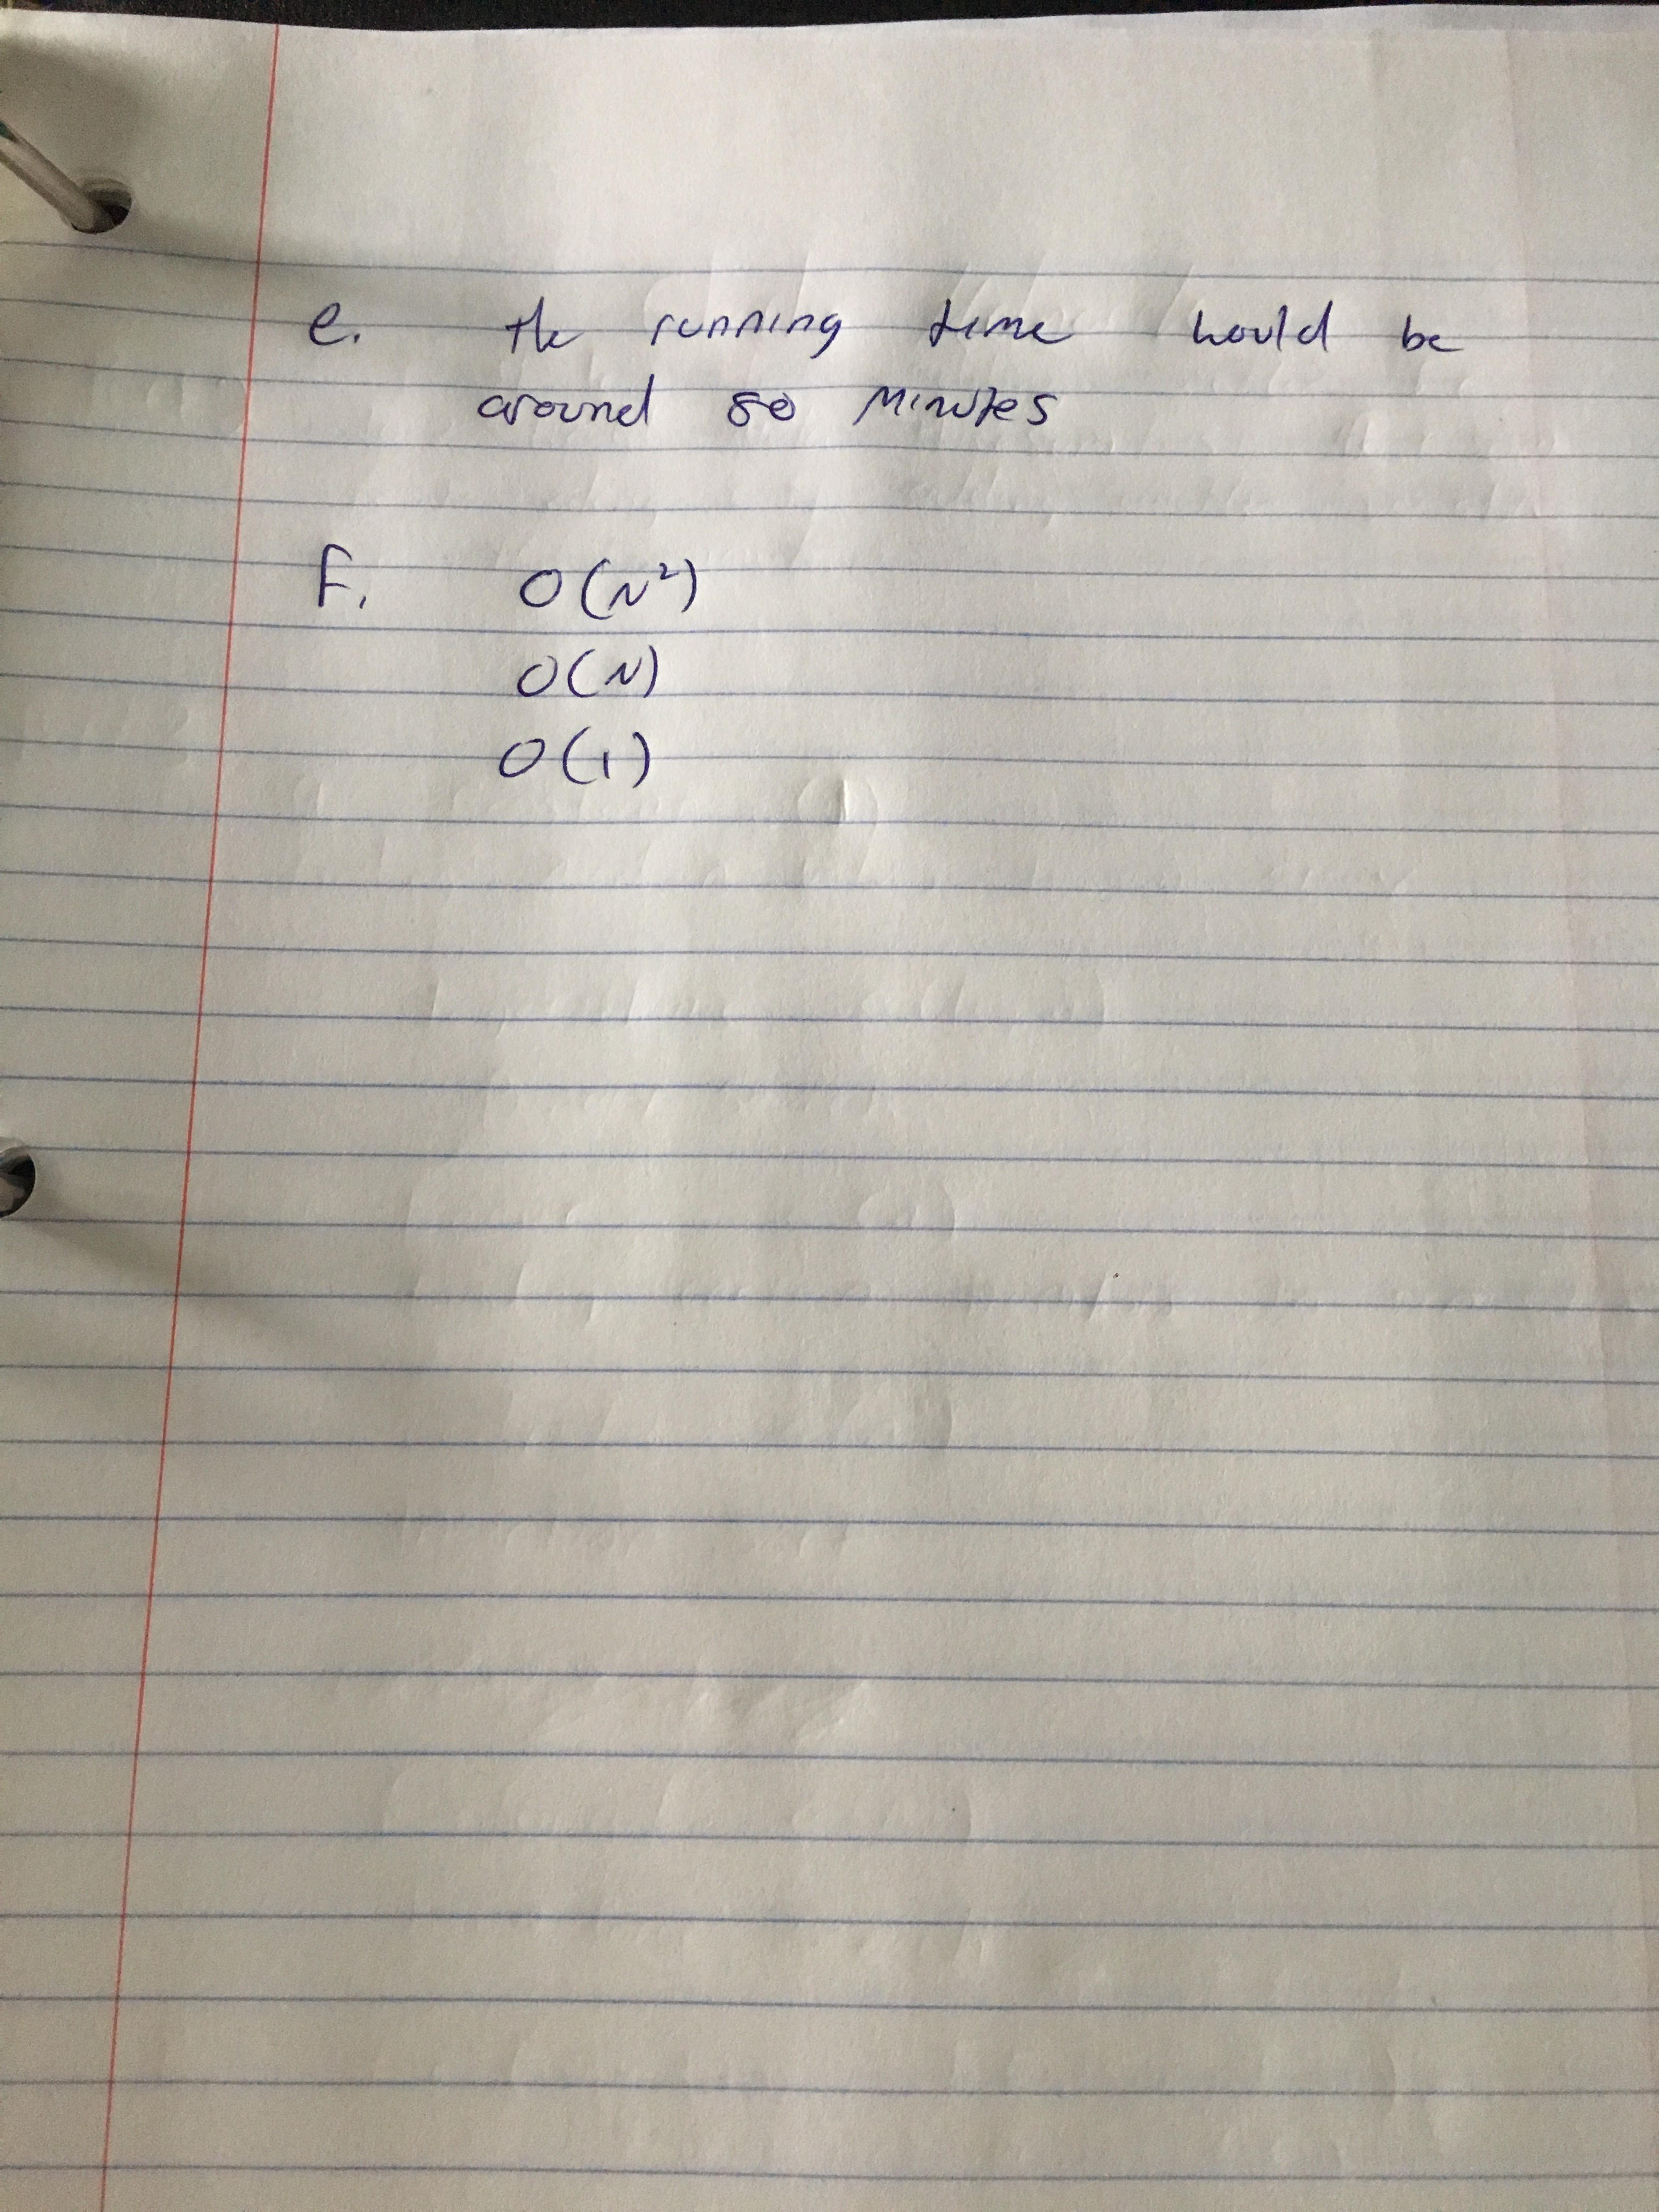 e. the running time would be
around 80 minutes
F. O(N²)
O(N)
O(1)